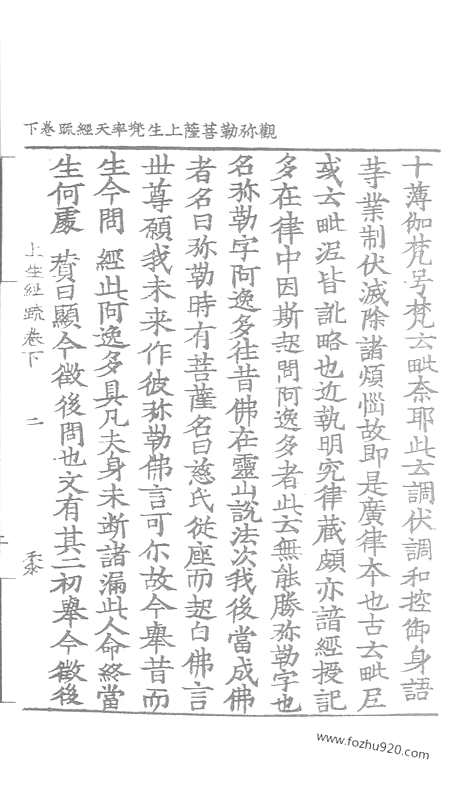 觀弥勒菩薩上生兠率天經䟽卷下
十薄伽梵号梵云毗奈耶此云調伏調和控御身語
等業制伏滅除諸煩惱故即是廣律夲也古云毗尼
或云毗泥皆訛略也近執明究律藏頗亦諳經授記
多在律中因斯起問阿逸多者此云無能勝弥勒字也
名弥勒字阿逸多往昔佛在靈山說法次我後當成佛
者名曰弥勒時有菩薩名曰慈氏從座而起白佛言
世尊願我未来作彼弥勒佛言可尓故今舉昔而
生今問 經此阿逸多具凡夫身未断諸漏此人命終當
生何處 賛曰顯今徵後問也文有其二初舉今徵後
上生經疏卷下 二
www.fozhu920.com